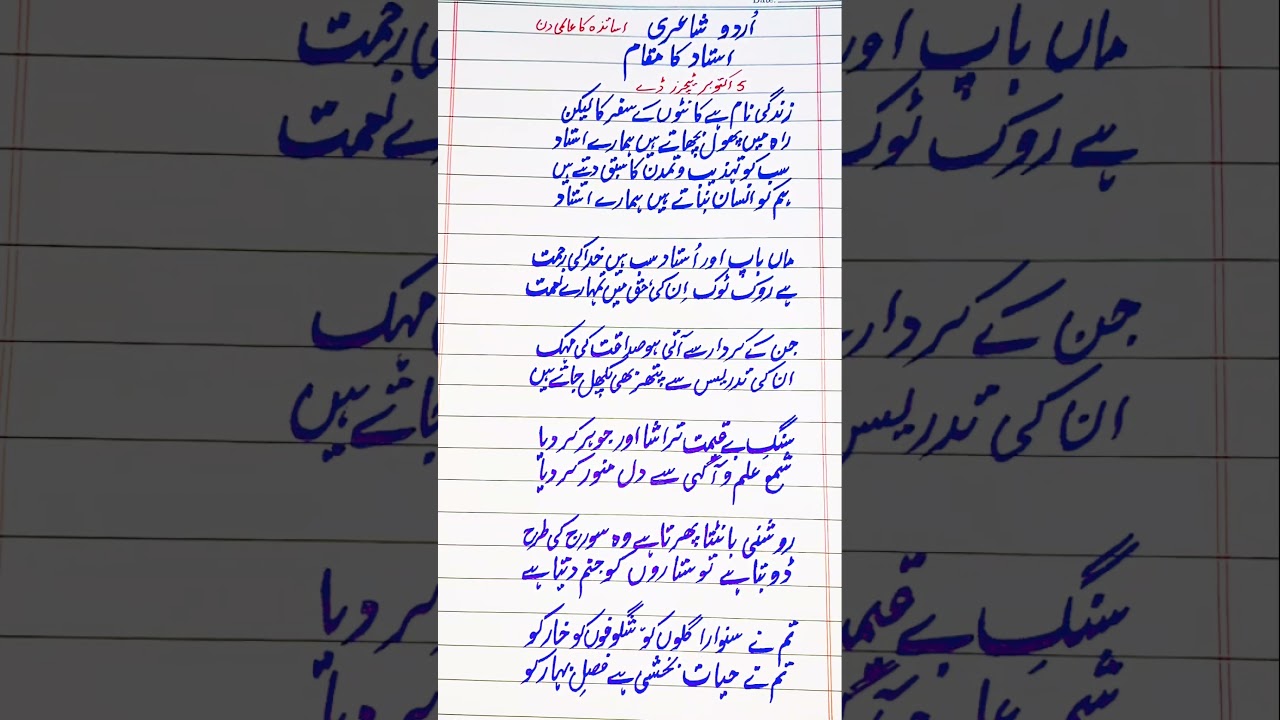 Date:
اُردو شاعری اساتذہ کا عالمی دن
استاد کا مقام
5 اکتوبر ٹیچرز ڈے
زندگی نام ہے کانٹوں کے سفر کا لیکن
راہ میں پھول بچھاتے ہیں ہمارے استاد
سب کو تہذیب و تمدن کا سبق دیتے ہیں
ہم کو انسان بناتے ہیں ہمارے استاد
ماں باپ اور اُستاد سب ہیں خدا کی رحمت
ہے روک ٹوک اِن کی حق میں تمہارے نعمت
جن کے کردار سے آتی ہو صداقت کی مہک
ان کی تدریس سے پتھر بھی پگھل جاتے ہیں
سنگِ بے قیمت تراشا اور جوہر کر دیا
شمعِ علم و آگہی سے دل منور کر دیا
روشنی بانٹتا پھرتا ہے وہ سورج کی طرح
ڈوبتا ہے تو ستاروں کو جنم دیتا ہے
تم نے سنوارا گلوں کو شگوفوں کو خار کو
تم نے حیات بخشی ہے فصلِ بہار کو